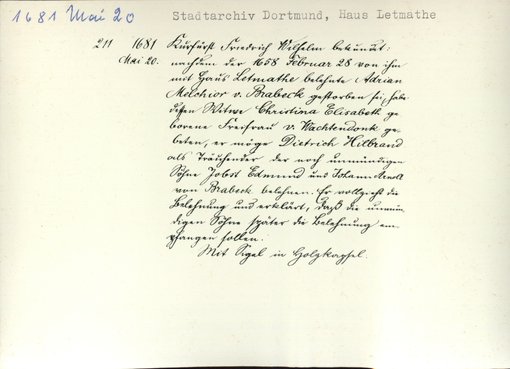 1681 Mai 20 Stadtarchiv Dortmund, Haus Letmathe
211 1681 Kurfürst Friedrich Wilhelm bekundet:
Mai 20. nachdem der 1658 Februar 28 von ihm
mit Haus Letmathe belehnte Adrian
Melchior v. Brabeck gestorben sei, habe
dessen Witwe Christina Elisabeth ge
borene Freifrau v. Wachtendonk ge
beten, er möge Dietrich Hilbrand
als Träuhender der noch unmündigen
Söhne Jobst Edmund und Johann Arnold
von Brabeck belehnen. Er vollzieht die
Belehnung und erklärt, daß die unmün
digen Söhne später die Belehnung em
pfangen sollen.
Mit Sigel in Holzkapsel.